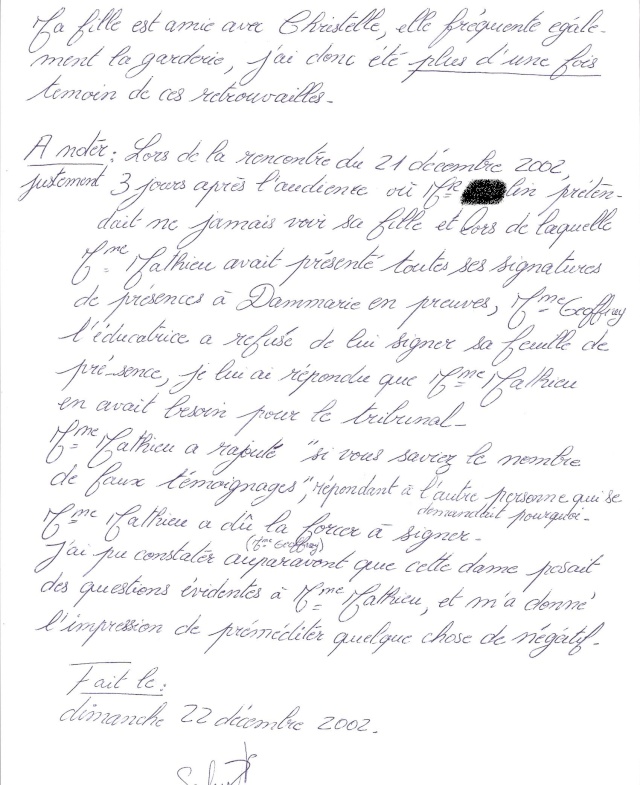 Ma fille est amie avec Christelle, elle fréquente égale-
ment la garderie, j'ai donc été plus d'une fois
temoin de ces retrouvailles.
A noter : Lors de la rencontre du 21 décembre 2002,
justement 3 jours après l'audience où Mr lin préten-
dait ne jamais voir sa fille et lors de laquelle
Mme Mathieu avait présenté toutes ses signatures
de présences à Dammarie en preuves, Mme Geoffray
l'éducatrice a refusé de lui signer sa feuille de
pré-sence, je lui ai répondu que Mme Mathieu
en avait besoin pour le tribunal-
Mme Mathieu a rajouté "si vous saviez le nombre
de faux témoignages", répondant à l'autre personne qui se
demandait pourquoi-
Mme Mathieu a dû la forcer à signer-
(Mme Geoffray)
J'ai pu constater auparavant que cette dame posait
des questions évidentes à Mme Mathieu, et m'a donné
l'impression de préméditer quelque chose de négatif-
Fait le :
dimanche 22 décembre 2002.